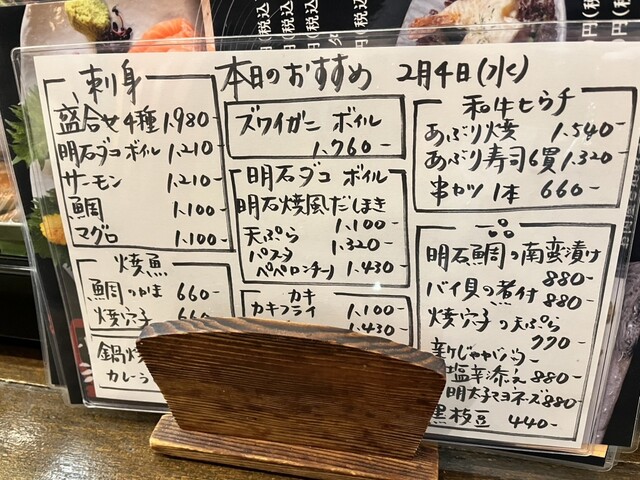 本日のおすすめ 2月4日(水)
刺身
盛合せ4種 1,980-
明石ダコボイル 1,210-
サーモン 1,210-
鯛 1,100-
マグロ 1,100-
焼魚
鯛のかま 660-
焼穴子 660-
鍋焼
カレーう
ズワイガニ ボイル
1,760-
明石ダコ ボイル
明石焼風だしまき
1,100-
天ぷら 1,320-
パスタ
ペペロンチーノ 1,430-
カキ
カキフライ 1,100-
1,430-
和牛ヒウチ
あぶり焼 1,540-
あぶり寿司6貫 1,320-
串カツ 1本 660-
明石鯛の南蛮漬け
880-
バイ貝の煮付 880-
焼穴子の天ぷら
770-
新じゃがバター
塩辛添え 880-
明太子マヨネーズ 880-
黒枝豆 440-